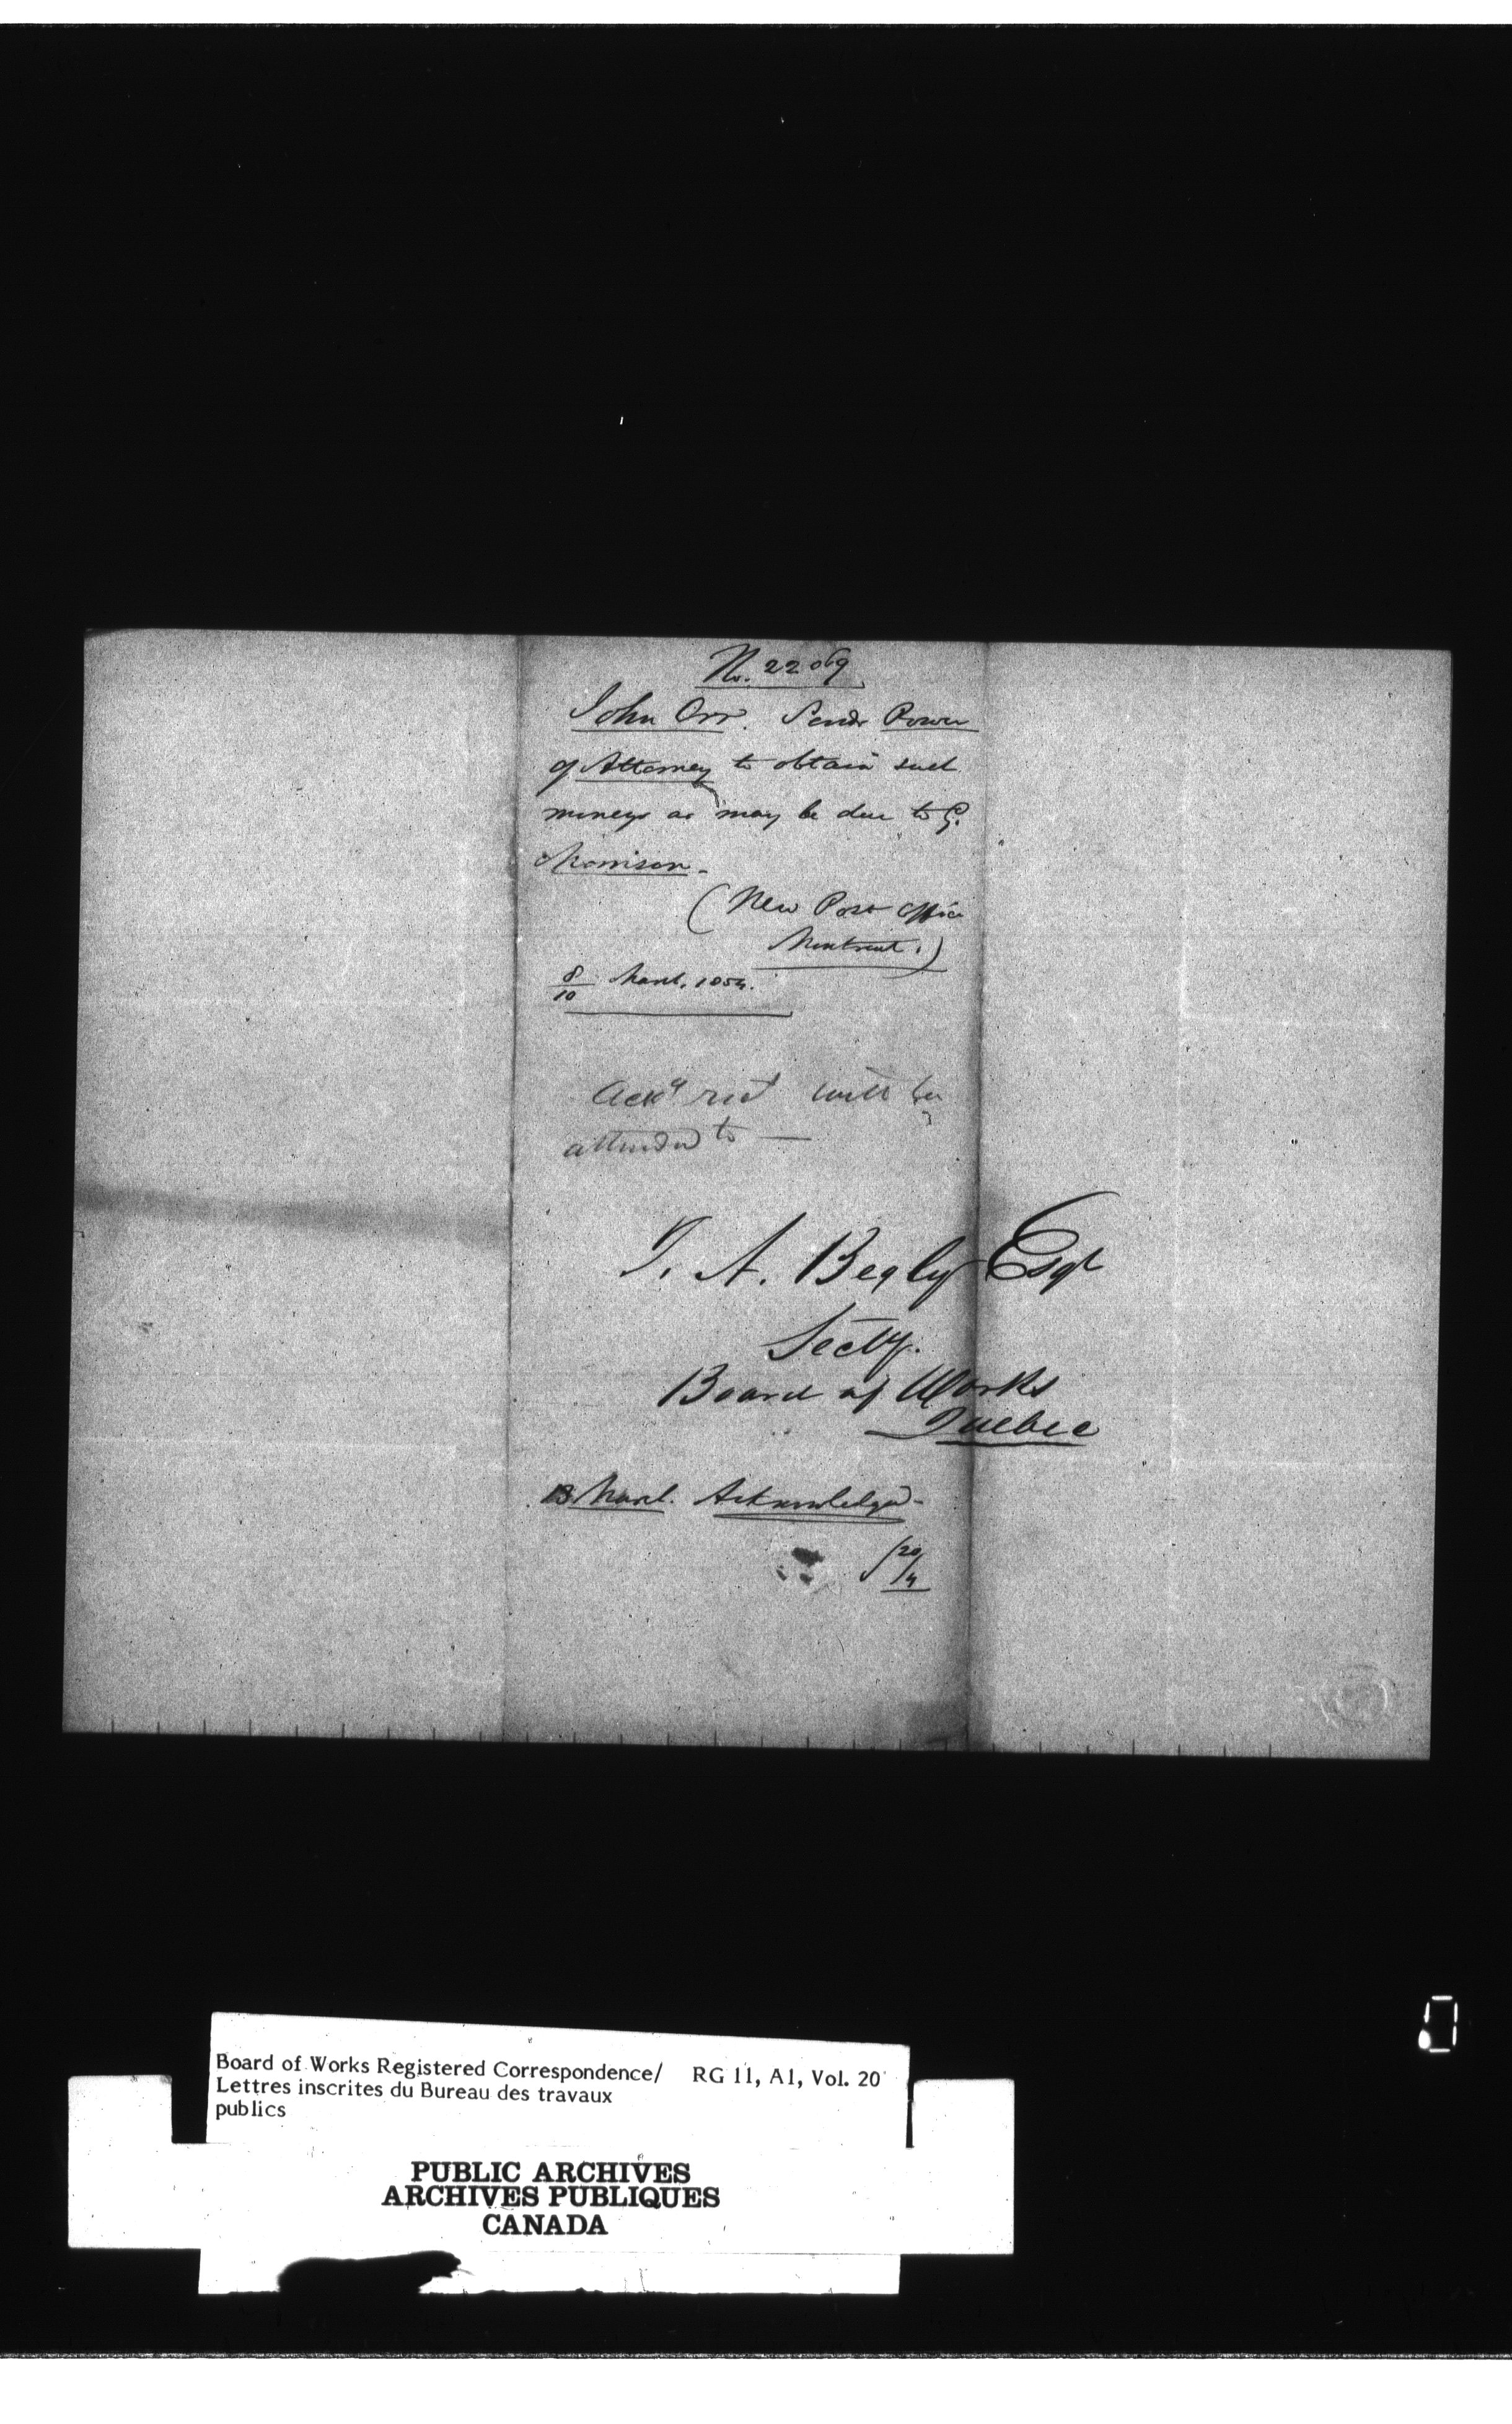 No. 22069
John Orr. Sends Power
of Attorney to obtain such
moneys as may be due to G.
Morrison.
(New Post Office
Montreal.)
8/10 March, 1854.
Ackd. rect will be
attended to —
T. A. Begly Esqr
Secty.
Board of Works
Quebec
13 March. Acknowledged.
20/4
Board of Works Registered Correspondence/ RG 11, A1, Vol. 20
Lettres inscrites du Bureau des travaux
publics
PUBLIC ARCHIVES
ARCHIVES PUBLIQUES
CANADA